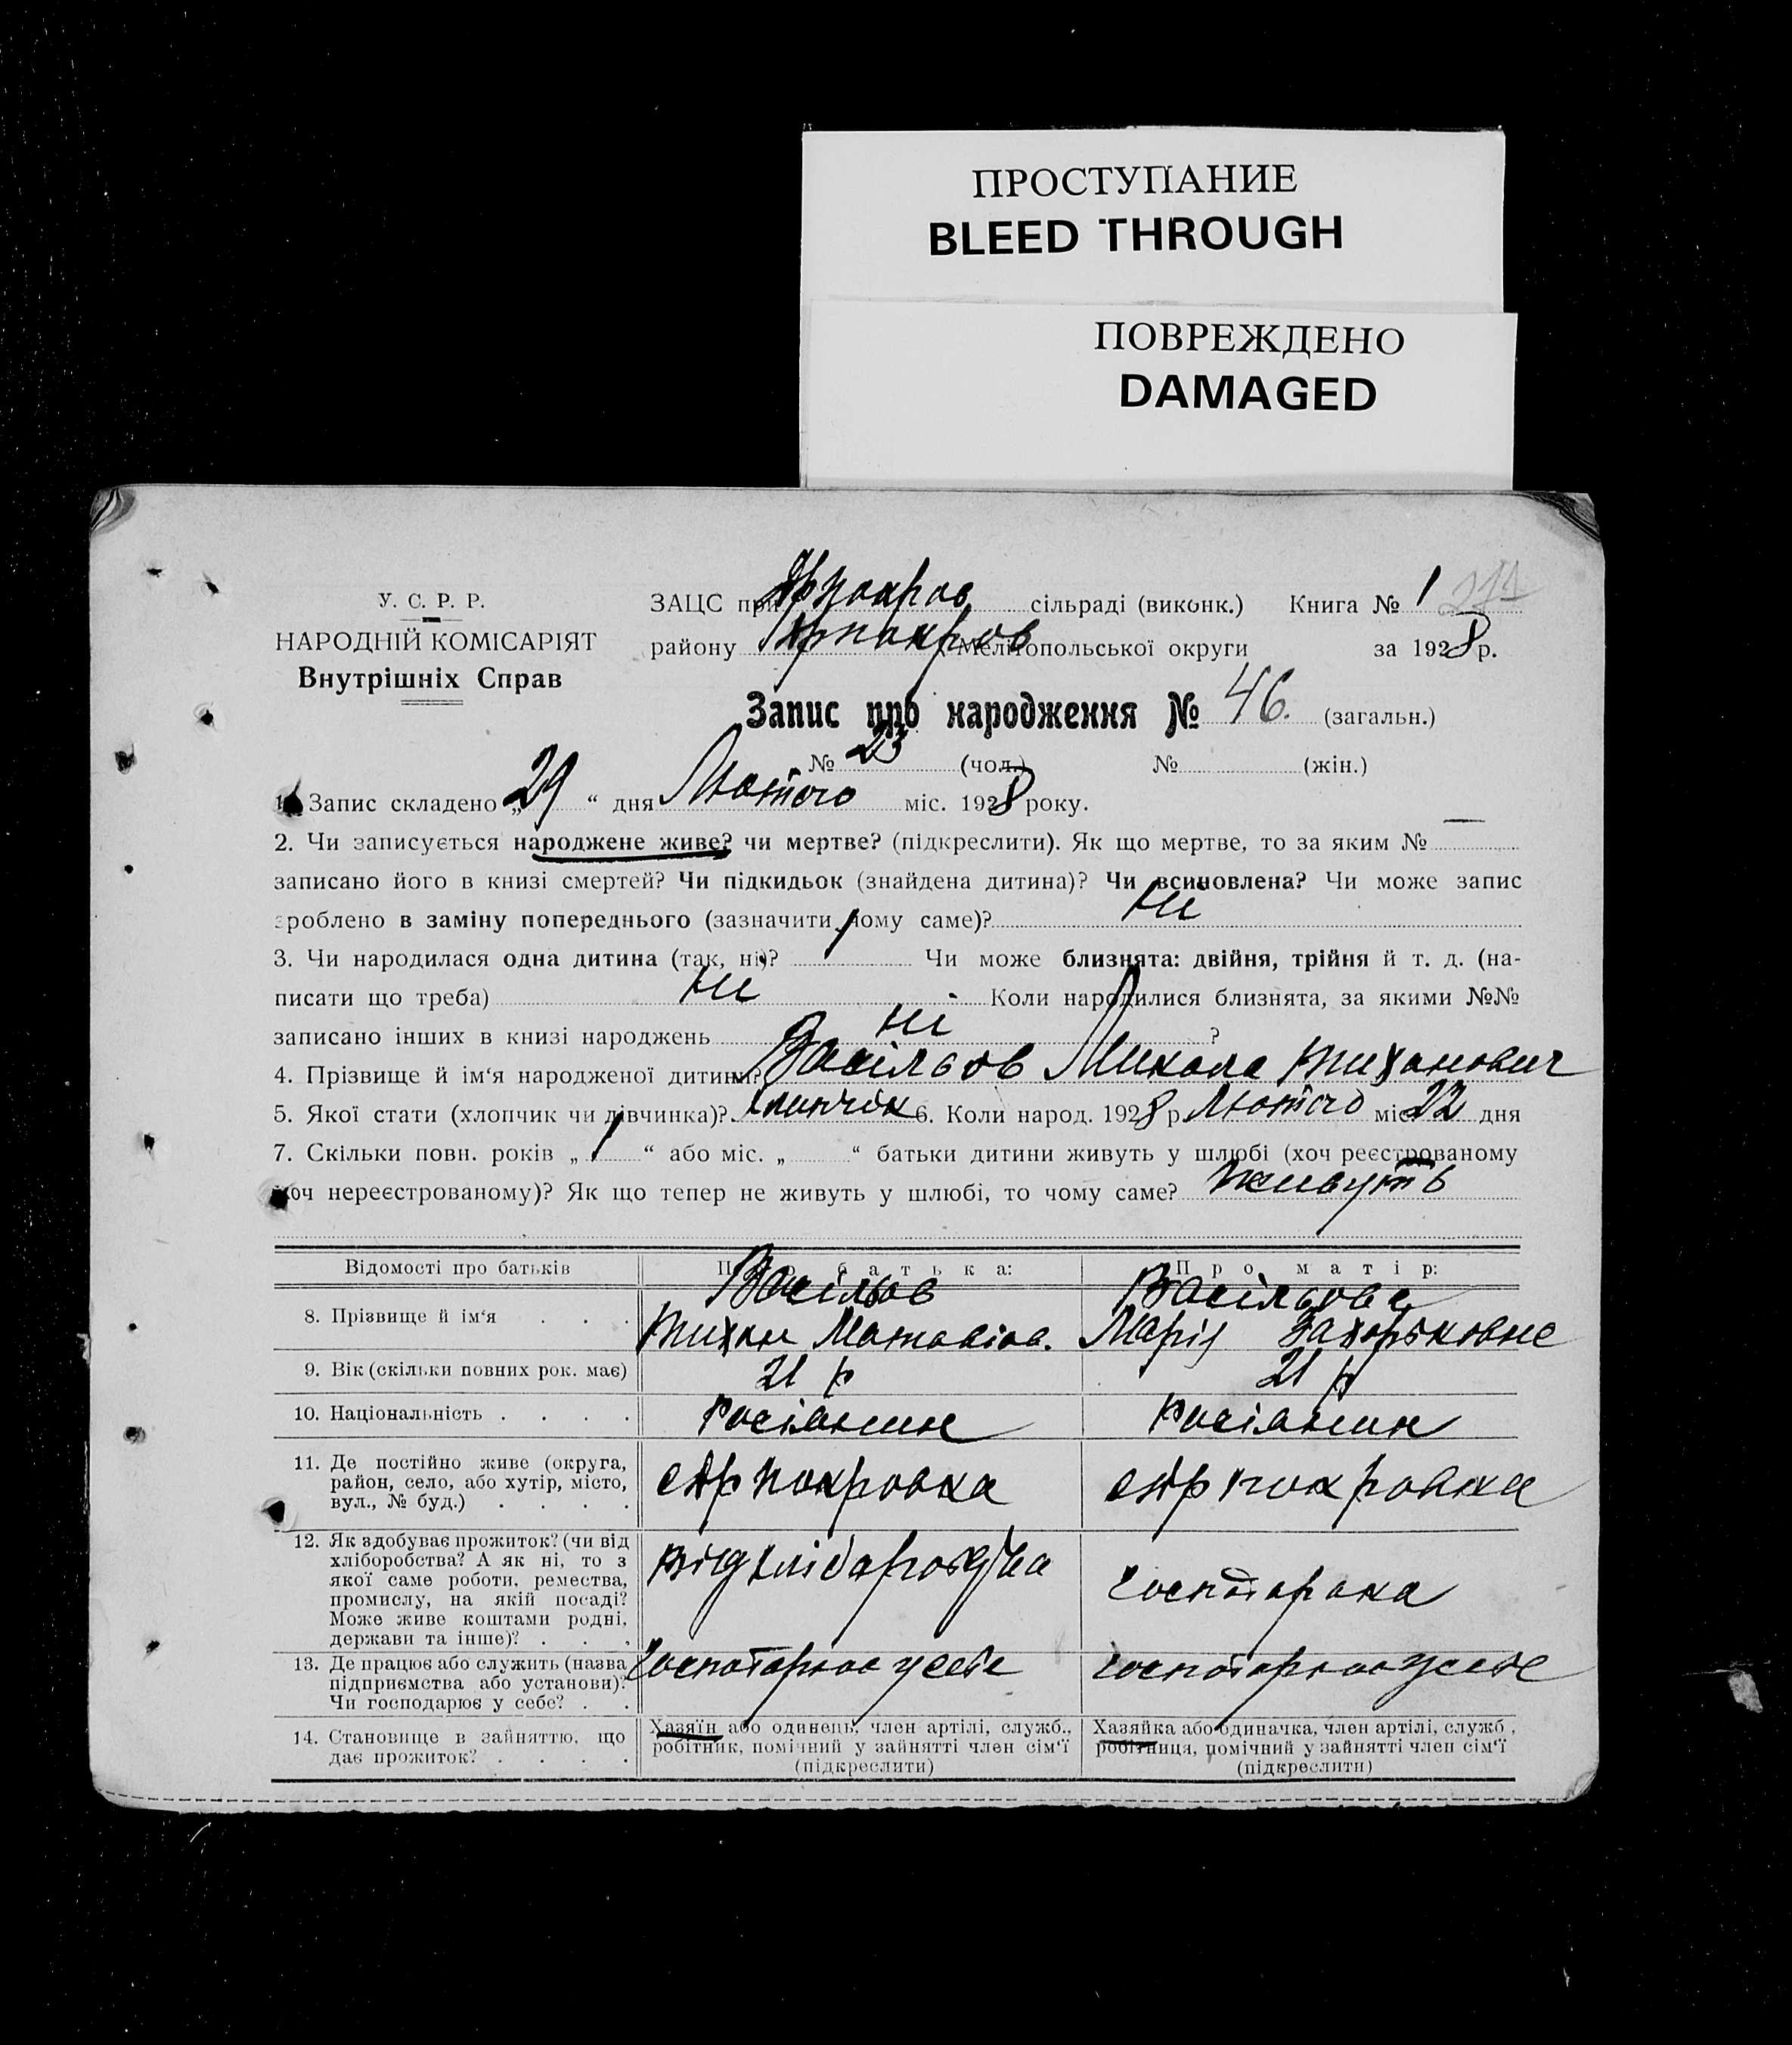 ПРОСТУПАНИЕ
BLEED THROUGH
ПОВРЕЖДЕНО
DAMAGED
У. С. Р. Р.
НАРОДНІЙ КОМІСАРІЯТ
Внутрішніх Справ
ЗАЦС при сільраді (виконк.) Книга № 1
району Мелітопольської округи за 1928 р.
Запис про народження № 46. (загальн.)
№ 23 (чол.) № (жін.)
1. Запис складено „29“ дня Лютого міс. 1928 року.
2. Чи записується народжене живе? чи мертве? (підкреслити). Як що мертве, то за яким № —
записано його в книзі смертей? Чи підкидьок (знайдена дитина)? Чи всиновлена? Чи може запис
зроблено в заміну попереднього (зазначити чому саме)? Ні
3. Чи народилася одна дитина (так, ні)? 1 Чи може близнята: двійня, трійня й т. д. (на-
писати що треба) Ні Коли народилися близнята, за якими №№
записано інших в книзі народжень ні ?
4. Прізвище й ім‘я народженої дитини? Васільов Микола Тиханович
5. Якої стати (хлопчик чи дівчинка)? 6. Коли народ. 1928 р. Лютого міс. 22 дня
7. Скільки повн. років „1“ або міс. „ “ батьки дитини живуть у шлюбі (хоч реєстрованому
хоч нереєстрованому)? Як що тепер не живуть у шлюбі, то чому саме? живуть
Відомості про батьків Про батька: Про матір:
8. Прізвище й ім‘я . . . Васільов Тихон Васільова Марія
9. Вік (скільки повних рок. має) 21 р 21 р
10. Національність . . . . Росіянин Росіянин
11. Де постійно живе (округа,
район, село, або хутір, місто,
вул., № буд.) . . . .
12. Як здобуває прожиток? (чи від
хліборобства? А як ні, то з
якої саме роботи, ремества,
промислу, на якій посаді?
Може живе коштами родні,
держави та інше)? . . .
13. Де працює або служить (назва
підприємства або установи)?
Чи господарює у себе? . .
14. Становище в зайняттю, що
дає прожиток? . . . .
Хазяїн або одинець, член артілі, служб.,
робітник, помічний у зайнятті член сім‘ї
(підкреслити)
Хазяйка або одиначка, член артілі, служб.,
робітниця, помічний у зайнятті член сім‘ї
(підкреслити)